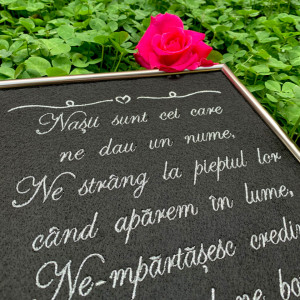 Nașii sunt cei care
ne dau un nume,
Ne strâng la pieptul lor
când apărem în lume,
Ne-mpărtășesc